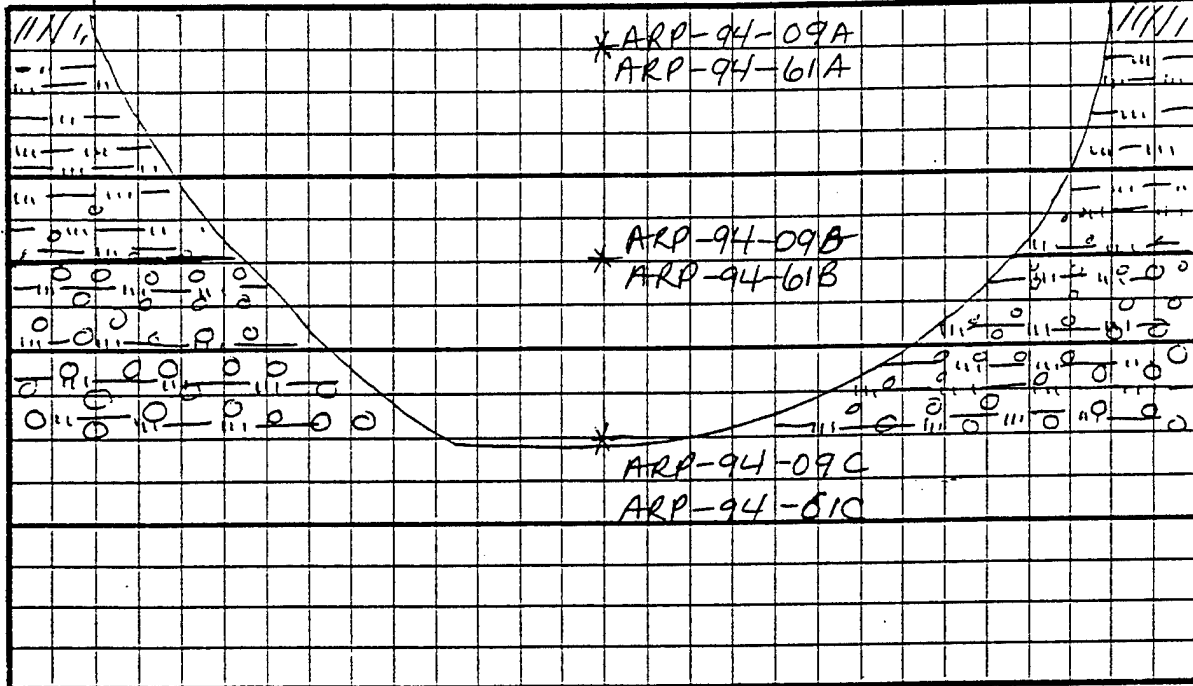 ARP-94-09A
ARP-94-61A
ARP-94-09B
ARP-94-61B
ARP-94-09C
ARP-94-61C